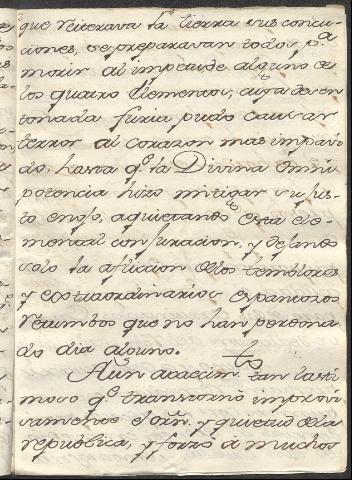 que reiterava la tierra sus concu-
ciones, se preparavan todos p.a
morir al impetu de alguno de
los quatro Elementos, cuya desen
tonada furia pudo causar
terror al corazon mas impavi
do, hasta q.e la Divina Omni
potencia hizo mitigar su jus-
to enojo, aquietando esta ele-
mental conjuracion, y dejando
solo la afliccion de los temblores
y extraordinarios espantosos
retumbos que no han perdona
do dia alguno.
Aun acaecim.to tan lasti
moso q.e transtornó improvi
samente el orn. y quietud de la
republica, y forzó à muchos